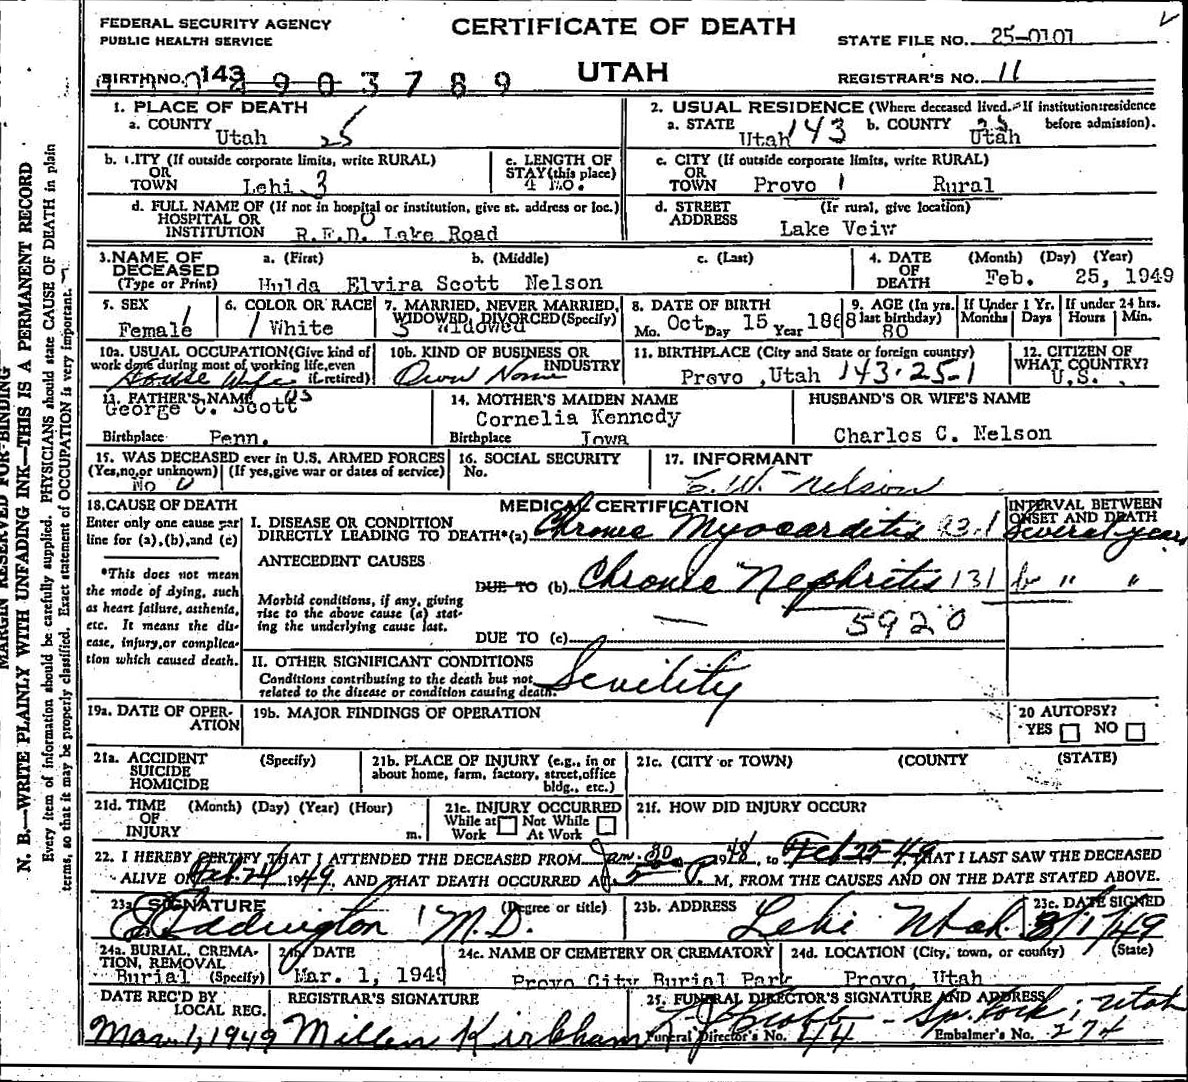 FEDERAL SECURITY AGENCY
PUBLIC HEALTH SERVICE
CERTIFICATE OF DEATH
UTAH
STATE FILE NO. 25-0101
REGISTRAR'S NO. 11
BIRTH NO. 143 2903789
1. PLACE OF DEATH
a. COUNTY
Utah 25
2. USUAL RESIDENCE (Where deceased lived. If institution: residence
before admission).
a. STATE Utah 143 b. COUNTY Utah
b. CITY (If outside corporate limits, write RURAL)
OR
TOWN Lehi 3
c. LENGTH OF
STAY (this place)
4 Mo.
c. CITY (If outside corporate limits, write RURAL)
OR
TOWN Provo 1 Rural
d. FULL NAME OF (If not in hospital or institution, give st. address or loc.)
HOSPITAL OR
INSTITUTION R.F.D. Lake Road
d. STREET (If rural, give location)
ADDRESS Lake Veiw
3. NAME OF
DECEASED
(Type or Print)
a. (First) b. (Middle) c. (Last)
Hulda Elvira Scott Nelson
4. DATE
OF
DEATH
(Month) (Day) (Year)
Feb. 25, 1949
5. SEX
Female 1
6. COLOR OR RACE
1 White
7. MARRIED, NEVER MARRIED,
WIDOWED, DIVORCED (Specify)
3 Widowed
8. DATE OF BIRTH
Mo. Oct Day 15 Year 1868
9. AGE (In yrs.
last birthday)
80
If Under 1 Yr.
Months Days
If under 24 hrs.
Hours Min.
10a. USUAL OCCUPATION (Give kind of
work done during most of working life, even
if retired)
House Wife
10b. KIND OF BUSINESS OR
INDUSTRY
Own Home
11. BIRTHPLACE (City and State or foreign country)
Provo, Utah 143-25-1
12. CITIZEN OF
WHAT COUNTRY?
U.S.
13. FATHER'S NAME
George C. Scott US
Birthplace Penn.
14. MOTHER'S MAIDEN NAME
Cornelia Kennedy
Birthplace Iowa
HUSBAND'S OR WIFE'S NAME
Charles C. Nelson
15. WAS DECEASED ever in U.S. ARMED FORCES
(Yes, no, or unknown) (If yes, give war or dates of service)
No 0
16. SOCIAL SECURITY
No.
17. INFORMANT
C. W. Nelson
18. CAUSE OF DEATH
Enter only one cause per
line for (a), (b), and (c)
*This does not mean
the mode of dying, such
as heart failure, asthenia,
etc. It means the dis-
ease, injury, or complica-
tion which caused death.
MEDICAL CERTIFICATION
I. DISEASE OR CONDITION
DIRECTLY LEADING TO DEATH*(a) Chronic Myocarditis 93-1
INTERVAL BETWEEN
ONSET AND DEATH
Several years
ANTECEDENT CAUSES
DUE TO (b) Chronic Nephritis 131 " "
Morbid conditions, if any, giving
rise to the above cause (a) stat-
ing the underlying cause last.
5920
DUE TO (c)
II. OTHER SIGNIFICANT CONDITIONS
Conditions contributing to the death but not
related to the disease or condition causing death.
Senility
19a. DATE OF OPER-
ATION
19b. MAJOR FINDINGS OF OPERATION
20 AUTOPSY?
YES NO
21a. ACCIDENT
SUICIDE
HOMICIDE
(Specify)
21b. PLACE OF INJURY (e.g., in or
about home, farm, factory, street, office
bldg., etc.)
21c. (CITY or TOWN) (COUNTY (STATE)
21d. TIME (Month) (Day) (Year) (Hour)
OF
INJURY m.
21e. INJURY OCCURRED
While at Not While
Work At Work
21f. HOW DID INJURY OCCUR?
22. I HEREBY CERTIFY THAT I ATTENDED THE DECEASED FROM Jan. 30 1948, to Feb 25 49 THAT I LAST SAW THE DECEASED
ALIVE ON Feb. 24 1949, AND THAT DEATH OCCURRED AT 5 P. M, FROM THE CAUSES AND ON THE DATE STATED ABOVE.
23a. SIGNATURE (Degree or title)
Eddington M.D.
23b. ADDRESS
Lehi Utah
23c. DATE SIGNED
3/1/49
24a. BURIAL, CREMA-
TION, REMOVAL
Burial (Specify)
24b. DATE
Mar. 1, 1949
24c. NAME OF CEMETERY OR CREMATORY
Provo City Burial Park
24d. LOCATION (City, town, or county) (State)
Provo, Utah
DATE REC'D BY
LOCAL REG.
Mar. 1, 1949
REGISTRAR'S SIGNATURE
Millen Kirkham
25. FUNERAL DIRECTOR'S SIGNATURE AND ADDRESS
Sp. Fork, Utah
Funeral Director's No. 44
Embalmer's No. 274
MARGIN RESERVED FOR BINDING
N. B.—WRITE PLAINLY WITH UNFADING INK—THIS IS A PERMANENT RECORD
Every item of information should be carefully supplied. PHYSICIANS should state CAUSE OF DEATH in plain
terms, so that it may be properly classified. Exact statement of OCCUPATION is very important.